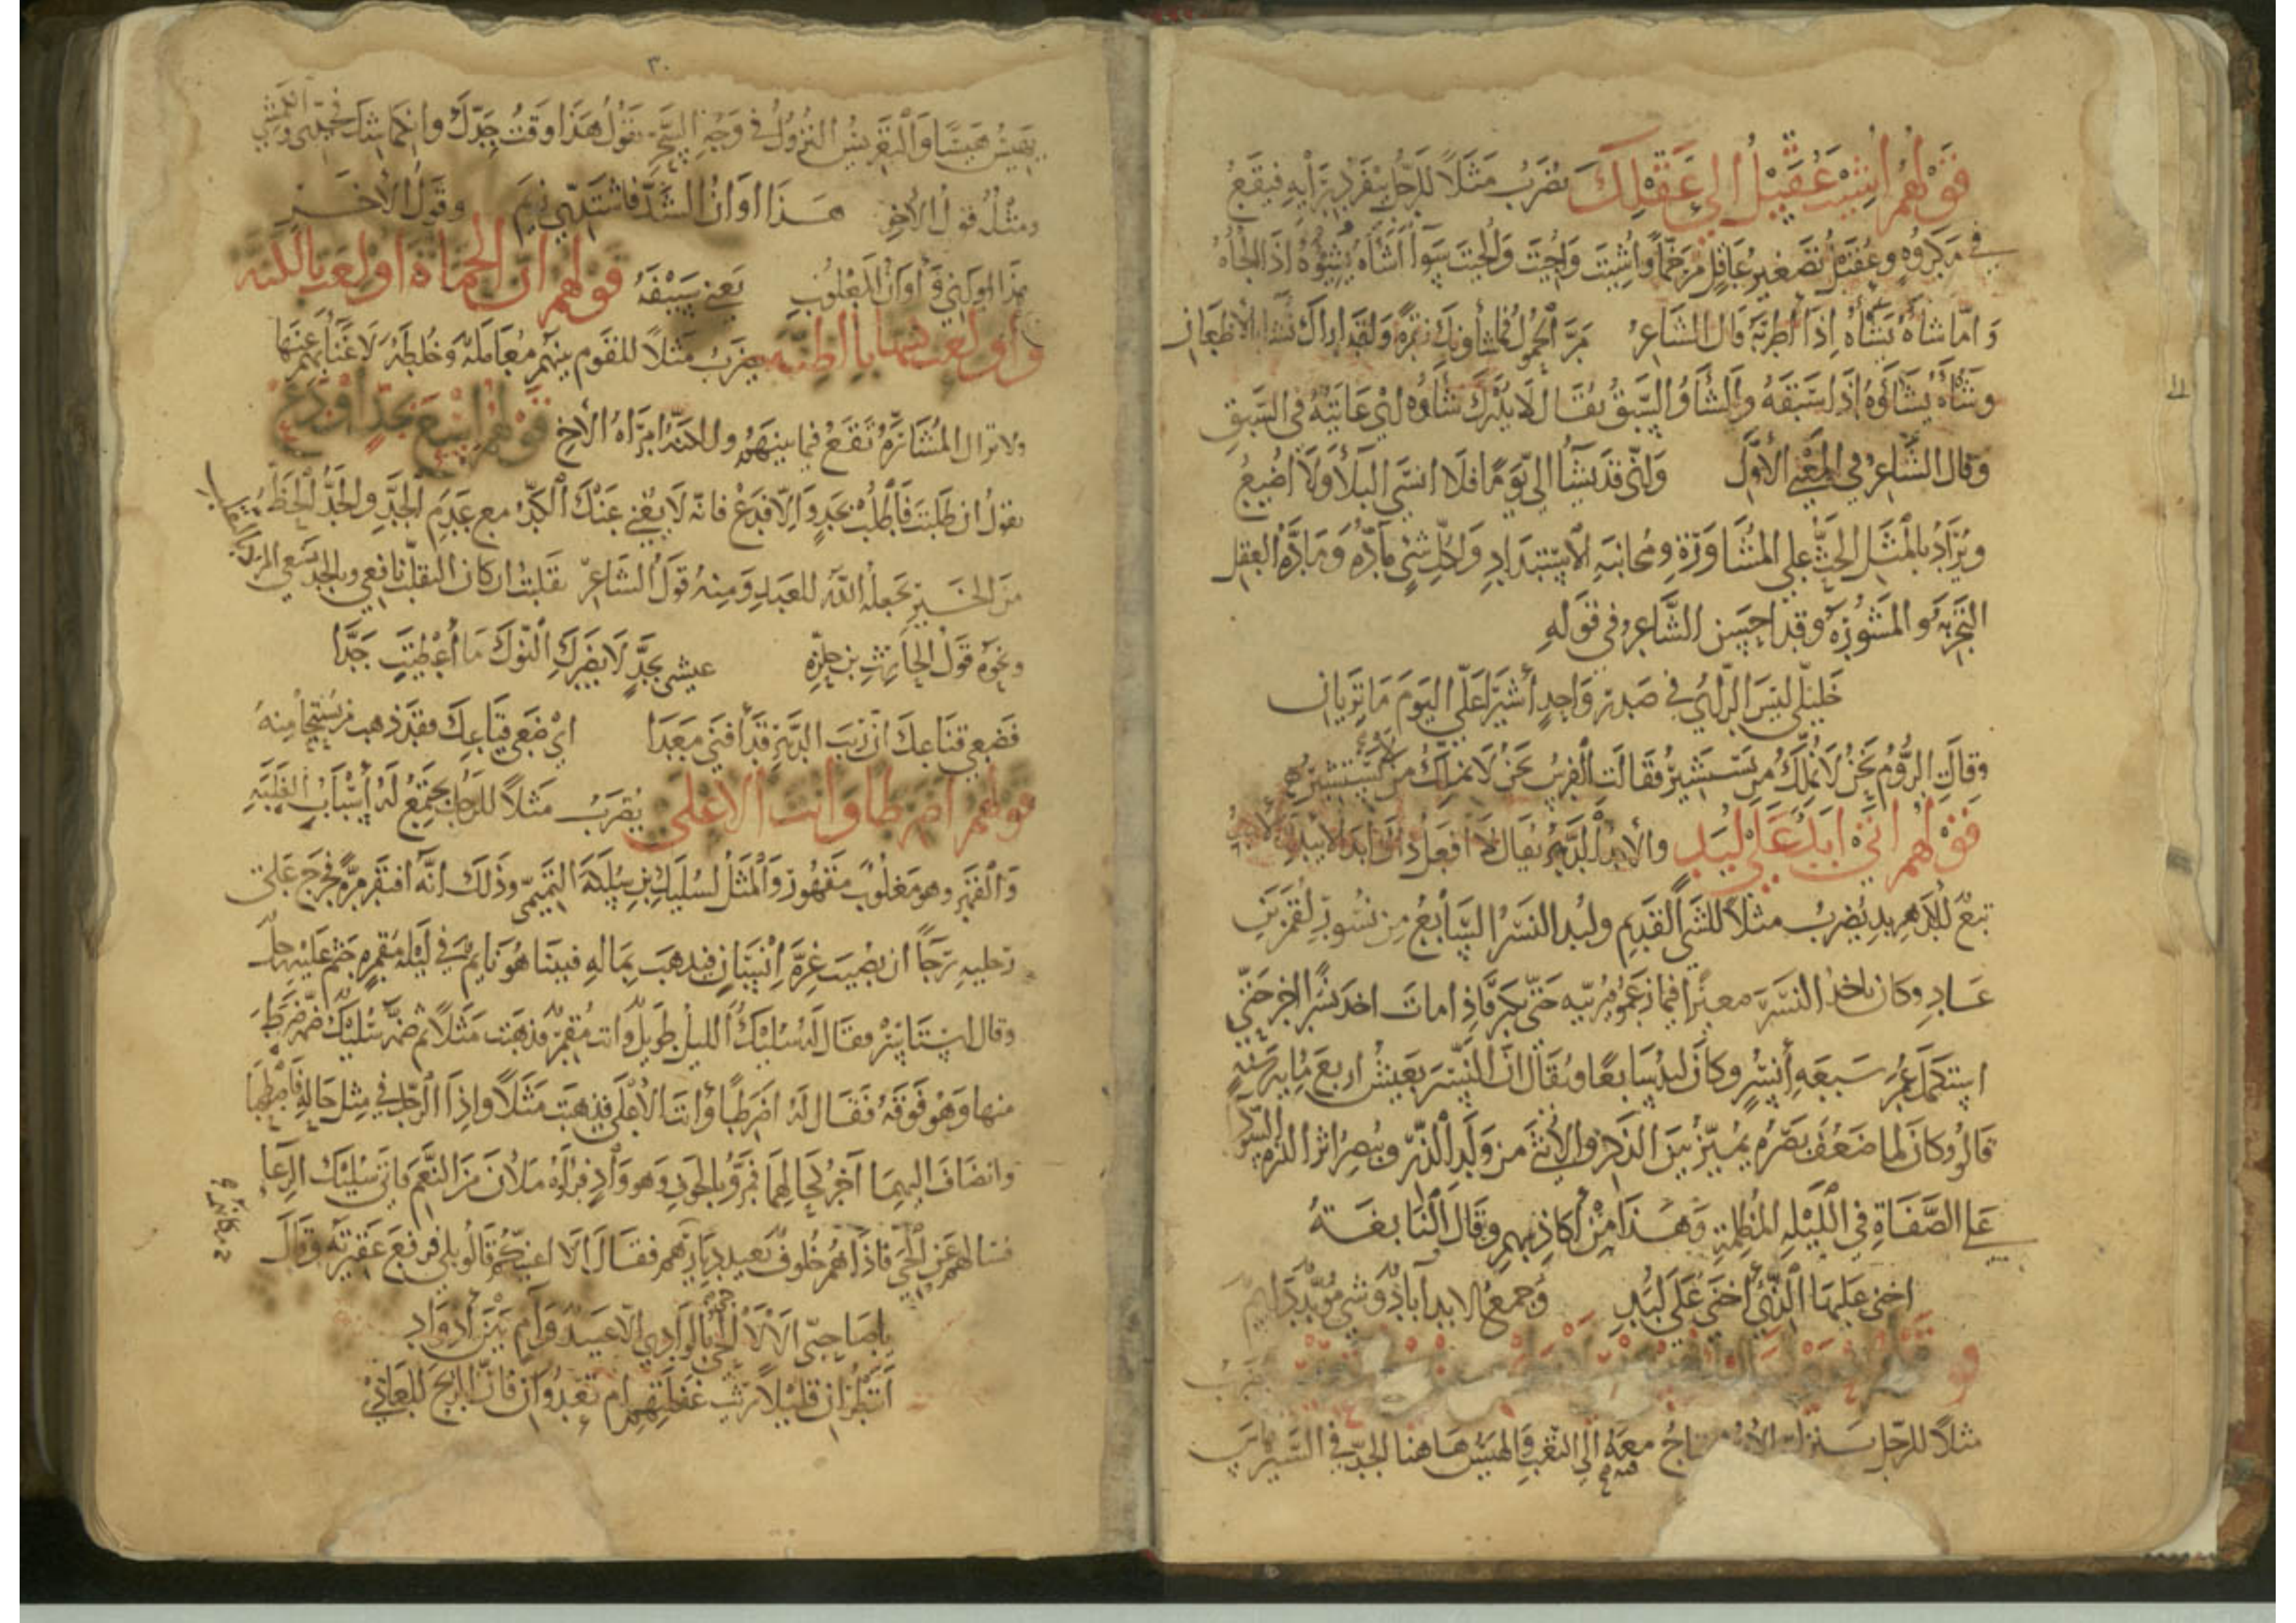 قولهم اشئت عقيل الى عقلك يضرب مثلا للرجل ينفرد برأيه فيقع
في مكروه وعقيل تصغير عاقل مرخما وأشيت وأجيت وألجيت سوآ أشأه يشيوه اذا الجأه
وامّا شاه يشاه اذا أطربه قال الشاعر مر الحمول فما شأونك نقرة ولقد اراك تشا بالأظعان
وشأه يشاؤه اذا سبقه والشاو السبق يقال لا يدرك شاوه اي غايته في السبق
وقال الشاعر في المعنى الأول واني قد يشآ الي يوما فلا انسي البلا ولا اضيع
ويراد بالمثل الحث على المشاورة ومجانبة الاستبداد ولكل شي مادّه ومادّه العقل
التجربه والمشورة وقد احسن الشاعر في قوله
خليلي ليس الرأي في صدر واحد أشيرا علي اليوم ما تريان
وقالت الروم نحن لا نملك من يستشير فقالت الفرس نحن لا نملك من لا يستشير
قولهم اتى ابد على لبد والأبد الدهر يقال لا افعل ذلك ابد الابيد
يضرب مثلا للشي القديم ولبد النسر السابع من نسور لقمن بن
عاد وكان ياخذ النسر صغيرا فيما زعمو فيربيه حتى يكبر فاذا مات اخذ نسرا اخر حتى
استكمل عمر سبعه أنسر وكان لبد سابعا ويقال ان النسر يعيش اربع مايه سنه
قالو وكان لما ضعف بصره يميز بين الذكر والانثى من ولد الذر ويبصر اثر الذره السودا
على الصفاة في الليله المظلمة وهذا من أكاذيبهم وقال النابغة
اخنى عليها الذي أخنى على لبد وجمع الابد آباد وشي مؤبد دايم
مثلا للرجل معه الى التعب والهيس هاهنا الجد في السير
٣٠
يهيس هيسا والتعريس النزول في وجه السحر يقول هذا وقت جدك وانكماشك
ومثله قول الأخر هذا اوان الشد فاشتدي زيم وقول الأخر
هذا اوان اني وأوان المعلوب يعني سيفه قولهم ان الحماة اولعت بالكنه
وأولعت كنتها بالظنه يضرب مثلا للقوم بينهم معامله وخلطه لا غنا بهم عنها
ولا تزال المشارّه تقع فيما بينهم والكنه امراه الأخ قولهم اسع بجد أو دع
يقول ان طلبت فاطلب بجد والا فدع فانه لا يغني عنك الكد مع عدم الجد والجد الحظ
من الخير يجعله الله للعبد ومنه قول الشاعر تقلبت ان كان التقلب نافعي وبالجد يسعى المرء
ونحوه قول الحارث بن حلزه عيشي بجد لا يضرك النوك ما أعطيت جدا
فضعي قناعك ان ريب الدهر قد أفنى معدا اي ضعي قناعك فقد ذهب من يستحيا منه
قولهم اضرطا وانت الاعلى يضرب مثلا للرجل يجتمع له أسباب الغلبه
والقهر وهو مغلوب مقهور والمثل لسليك بن سلكه التميمي وذلك انه افتقر مره فخرج على
رجليه رجا ان يصيب غرة انسان فيذهب بماله فبينا هو نايم في ليله مقمره جثم عليه رجل
وقال استاسر فقال له سليك الليل طويل وانت مقمر فذهبت مثلا ثم ضمه سليك ضمه ضرط
منها وهو فوقه فقال له اضرطا وانت الأعلى فذهبت مثلا واذا الرجل في مثل حاله فاصطحبا
وانضاف اليهما آخر كحالهما فمرو بالجوف وهو وادٍ فراوه ملان من النعم فاتى سليك الرعا
فسالهم عن الحي فاذاهم خلوف بعيد ديارهم فقال الا اغنيكم قالو بلي فرفع عقيرته وقال
يا صاحبي الا لا حي بالوادي الا عبيد وآم بين أذواد
اتنظران قليلا ريث غفلتهم ام تعدوان فان الربح للعادي